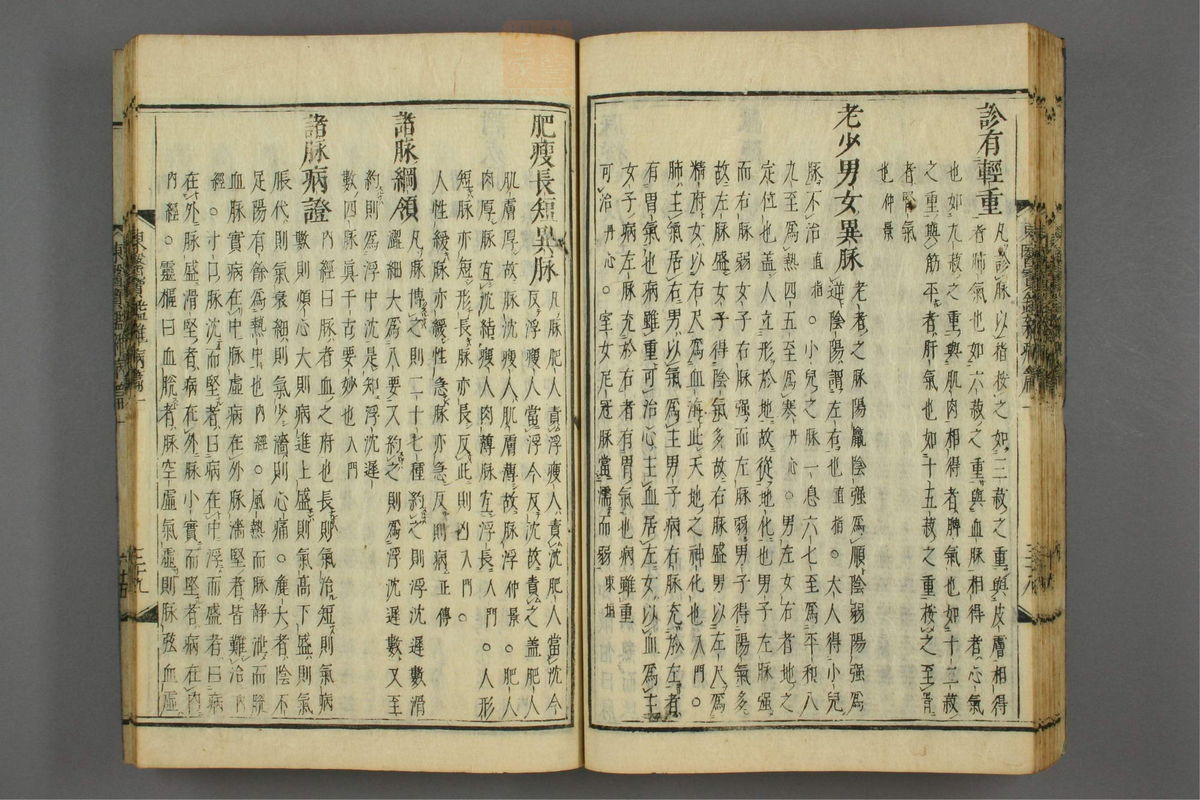 診有輕重 凡診脉以指按之如三菽之重與皮膚相得
者肺氣也如六菽之重與血脉相得者心氣
也如九菽之重與肌肉相得者脾氣也如十二菽
之重與筋平者肝氣也如十五菽之重按之至骨
者腎氣
也仲景
老少男女異脉 老者之脉陽麄陰强爲順陰弱陽强爲
逆陰陽謂左右也直指
脉不治直指○小兒之脉一息六七至爲平和八
九至爲熱四五至爲寒丹心○男左女右者地之
定位也盖人立形於地故從地化也男子左脉强
而右脉弱女子右脉强而左脉弱男子得陽氣多
故左脉盛女子得陰氣多故右脉盛男以左尺爲
精府女以右尺爲血海此天地之神化也入門○
肺主氣居右男以氣爲主男子病右脉充於左者
有胃氣也病雖重可治心主血居左女以血爲主
女子病左脉充於右者有胃氣也病雖重
可治丹心○室女尼冠脉當濡而弱東垣
肥瘦長短異脉 凡脉肥人責浮瘦人責沈肥人當沈今
反浮瘦人當浮今反沈故責之盖肥人
肌膚厚故脉沈瘦人肌膚薄故脉浮仲景○肥人
肉厚脉宜沈結瘦人肉薄脉宜浮長入門○人形
短脉亦短形長脉亦長反此則凶入門○
人性緩脉亦緩性急脉亦急反則病正傳
諸脉綱領 凡脉博之則二十七種約之則浮沈遲數滑
濇細大爲八要又約之則爲浮沈遲數又至
約則爲浮中沈是知浮沈遲
數四脉眞千古要妙也入門
諸脉病證 內經曰脉者血之府也長則氣治短則氣病
數則煩心大則病進上盛則氣高下盛則氣
脹代則氣衰細則氣少濇則心痛○麄大者陰不
足陽有餘爲熱中也內經○風熱而脉静泄而脫
血脉實病在中脉虛病在外脉濇堅者皆難治內
經○寸口脉沈而堅者曰病在中浮而盛者曰病
在外脉盛滑堅者病在外脉小實而堅者病在內
內經○靈樞曰血脫者脉空虛氣虛則脉弦血虛